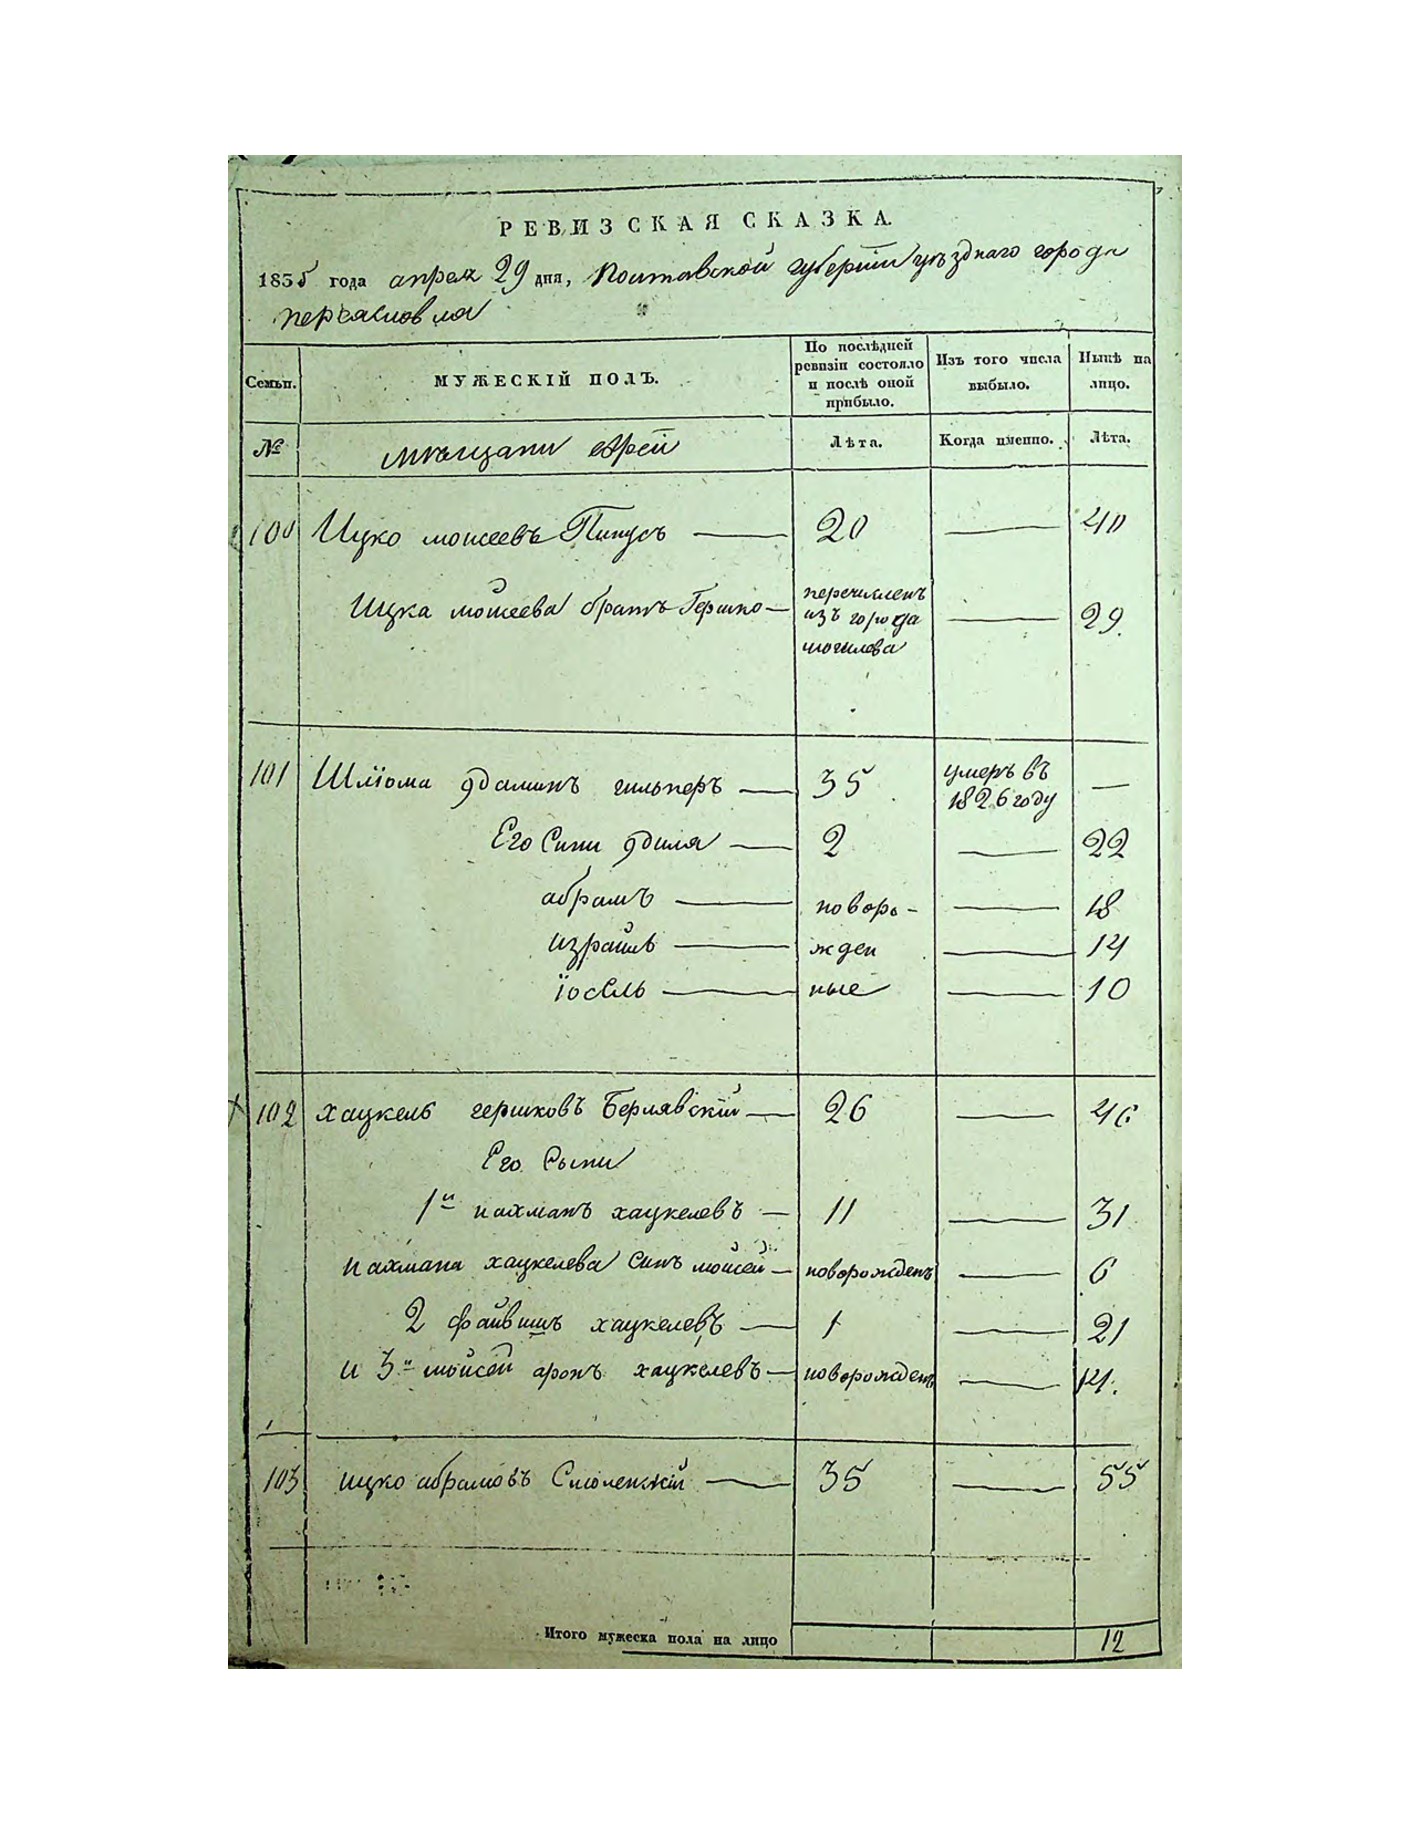 РЕВИЗСКАЯ СКАЗКА.
1835 года апреля 29 дня, Полтавской губернии уѣзднаго города
переяславля
Семьи.
МУЖЕСКІЙ ПОЛЪ.
По послѣдней ревизіи состояло и послѣ оной прибыло.
Изъ того числа выбыло.
Нынѣ на лицо.
№
мѣщани евреи
Лѣта.
Когда именно.
Лѣта.
100 Ицко мошеевъ Пинусъ 20 40
Ицка мошеева братъ Гершко перечисленъ 29
изъ города
могилева
101 Шліома 35 умеръ въ
1826 году
Его Сини 2 22
абрамъ новоро- 18
израиль жден 14
іосель ные 10
102 хацкель гершковъ Берлявскій 26 46
Его Сыни
1й нахманъ хацкелевъ 11 31
нахмана хацкелева Синъ мойсей новорожденъ 6
2 файвишъ хацкелевъ 1 21
и 3й мойсей аронъ хацкелевъ новорожденъ 14.
103 ицко абрамовъ Смоленскій 35 55
Итого мужеска пола на лицо 12